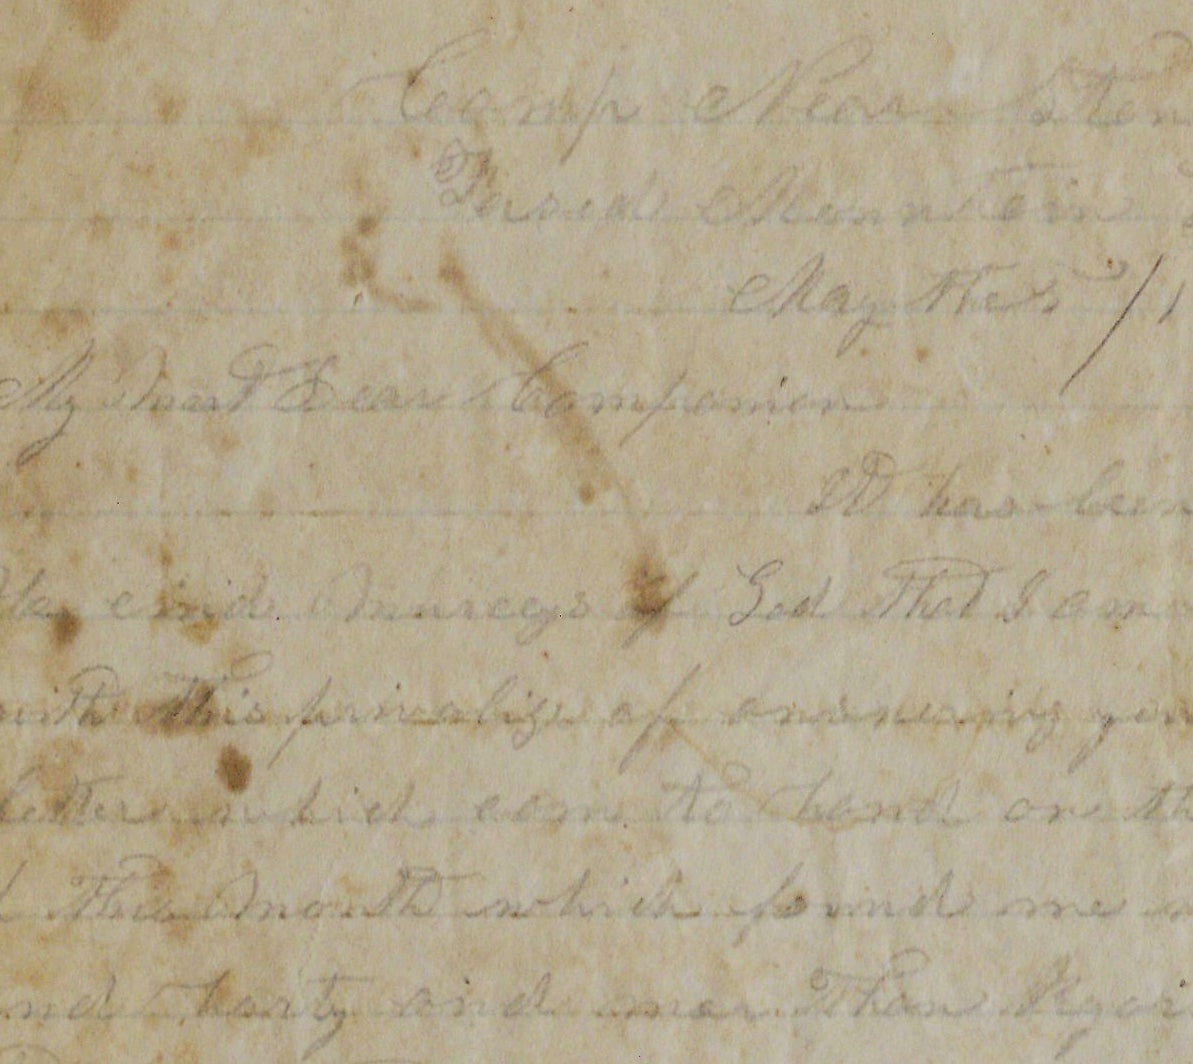 Camp Near Ston
Mountain
May the 5 / 1
My Most Dear Companion
It has been
the cind Murcys of God that I am
with this privalige of answering you
letter which cam to hand on th
this Month which found me
nd harty and mor Than